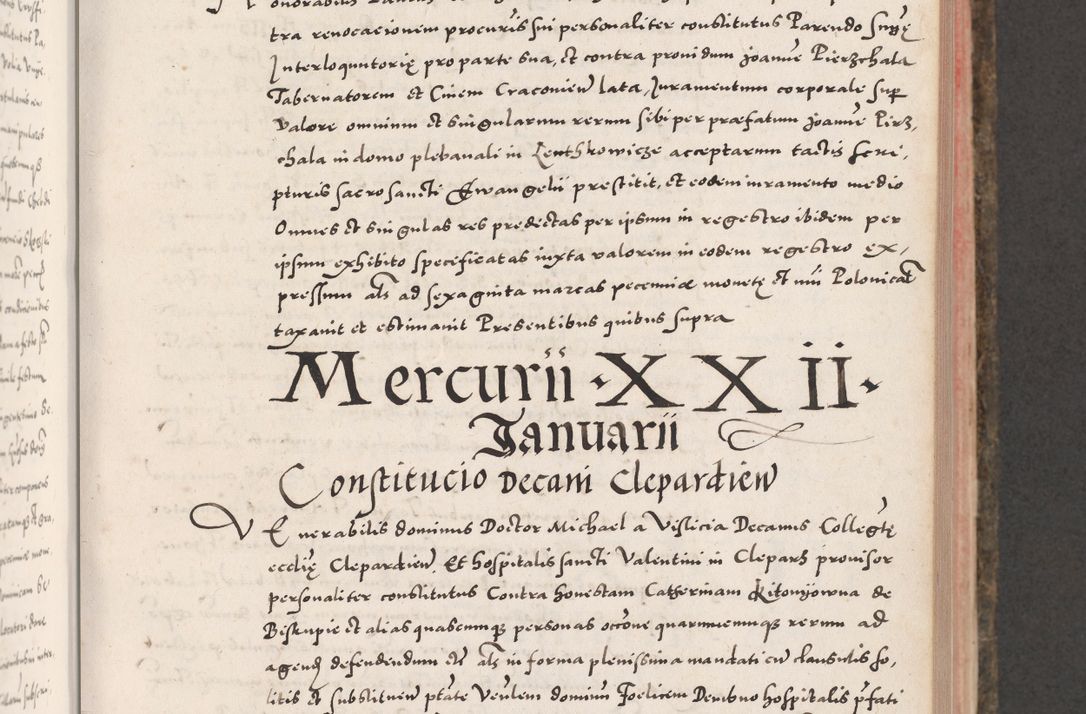 tra renocacionem procuris sui personaliter constitutus Parendo snię
Interloquutorię pro parte sua, et contra prouidum Joanne Pierzchala
Tabernatorem et Ciuem Cracouien lata, Juramentum corporale sup
valore omnium et singularum rerum sibi per præfatum Joanne Pirz,
chala in domo plebanali in Lenthkowicze acceptarum tactis scri,
pturis sacrosancti Ewangelii prestitit, et eodem iuramento medio
Omnes et singulas res predictas per ipsum in regestro ibidem per
ipsum exhibito specificatas iuxta valorem in eodem regestro ex,
pressum als ad sexaginta marcas pecuniæ monetę et nui Polonical
taxauit et estimauit Presentibus quibus supra
Mercurii · X X II ·
Januarii
Constitucio Decani Clepardien
Venerabilis dominus Doctor Michael a Vislicia Decanus Collegtę
ecclię Clepardien, Et hospitalis sancti Valentini in Cleparz prouisor
personaliter constitutus Contra honestam Catherinam Kitonijowna de
Biskupie et alias quascumque personas occone quarumcumque rerum ad
agend defendendum etc als in forma plenissima mandati cu clausulis so,
litis et substituen ptate Venlem dominum Foelicem hospitalis pfati